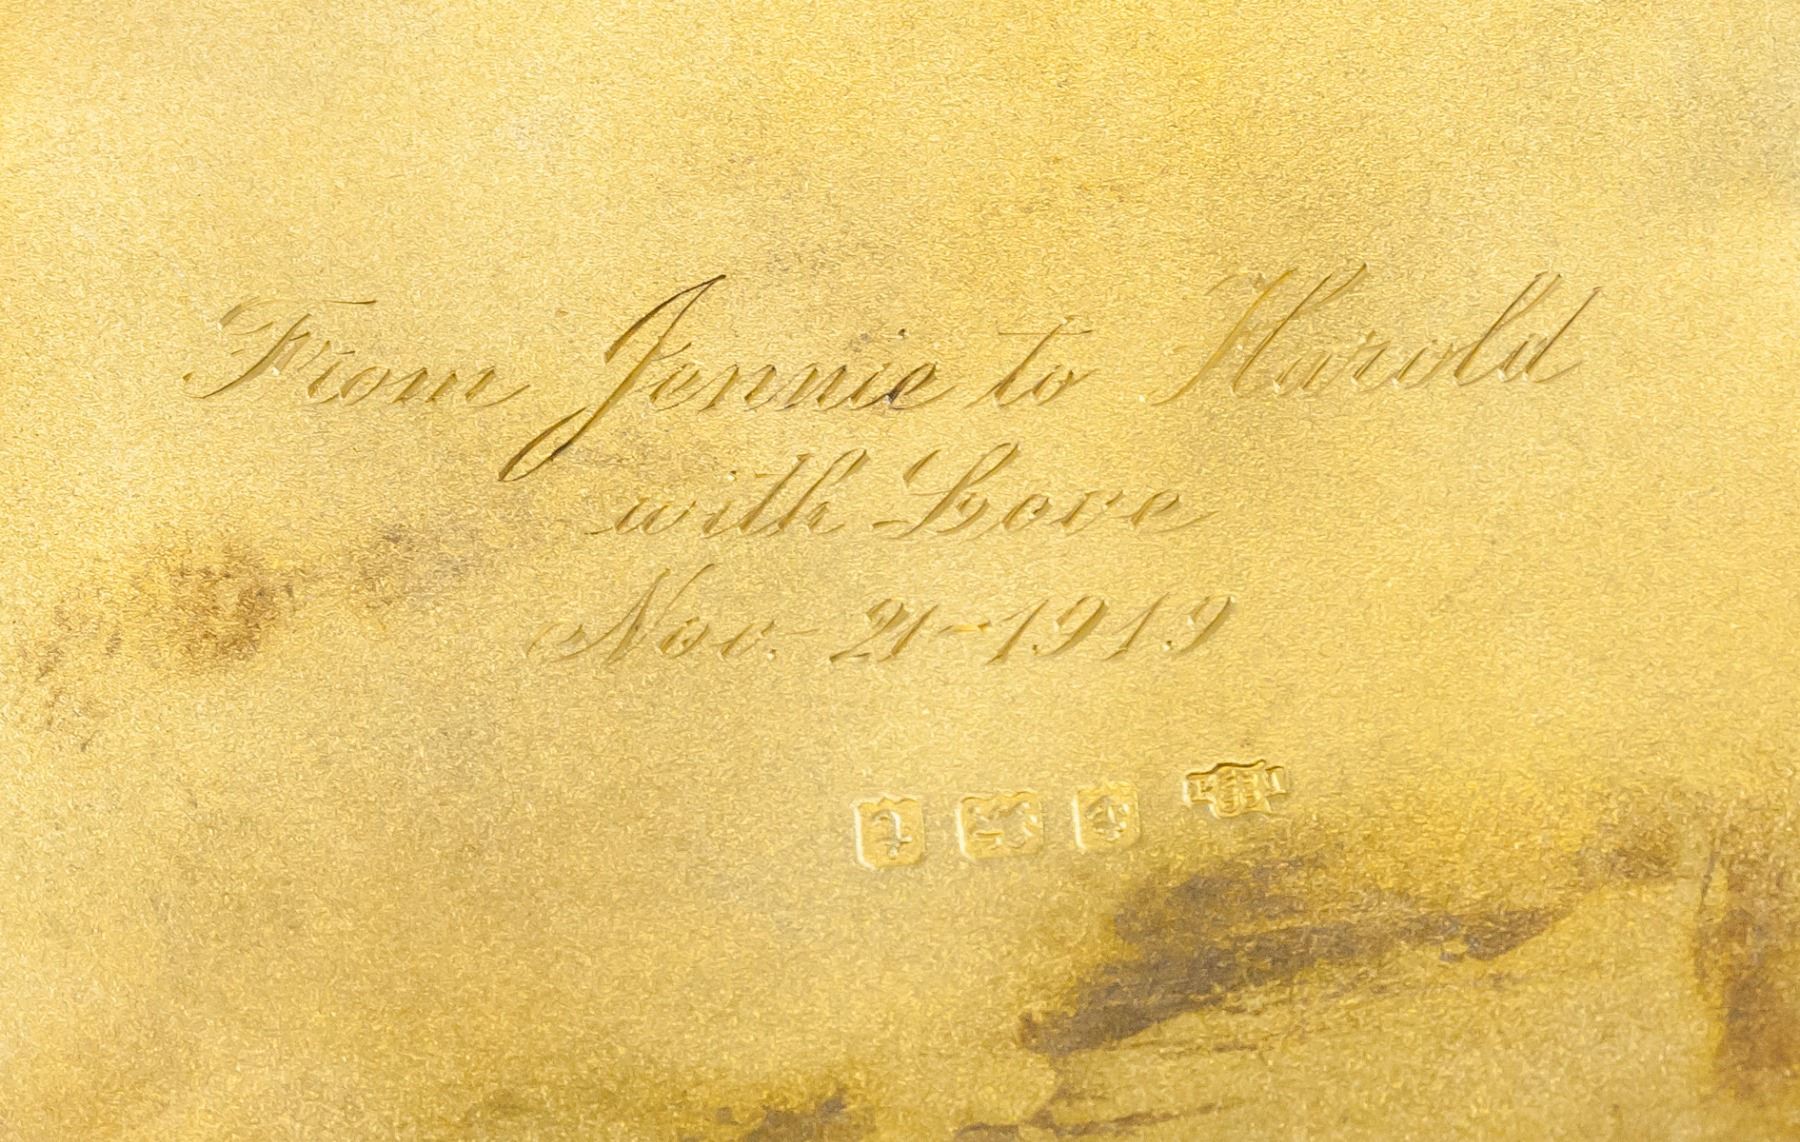 From Jennie to Harold
with Love
Nov. 21-1919